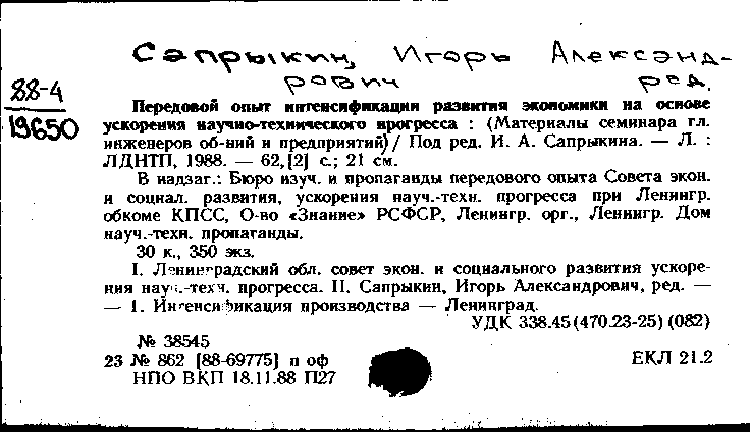 Сапрыкин, Игорь Александ-
рович ред.
88-4
19650
Передовой опыт интенсификации развития экономики на основе
ускорения научно-технического прогресса : (Материалы семинара гл.
инженеров об-ний и предприятий) / Под ред. И. А. Сапрыкина. — Л. :
ЛДНТП, 1988. — 62,[2] с.; 21 см.
В надзаг.: Бюро изуч. и пропаганды передового опыта Совета экон.
и социал. развития, ускорения науч.-техн. прогресса при Ленингр.
обкоме КПСС, О-во «Знание» РСФСР, Ленингр. орг., Ленингр. Дом
науч.-техн. пропаганды.
30 к., 350 экз.
I. Ленинградский обл. совет экон. и социального развития ускоре-
ния науч.-техн. прогресса. II. Сапрыкин, Игорь Александрович, ред. —
— 1. Интенсификация производства — Ленинград.
УДК 338.45(470.23-25)(082)
№ 38545
23 № 862 [88-69775] п оф ЕКЛ 21.2
НПО ВКП 18.11.88 П27